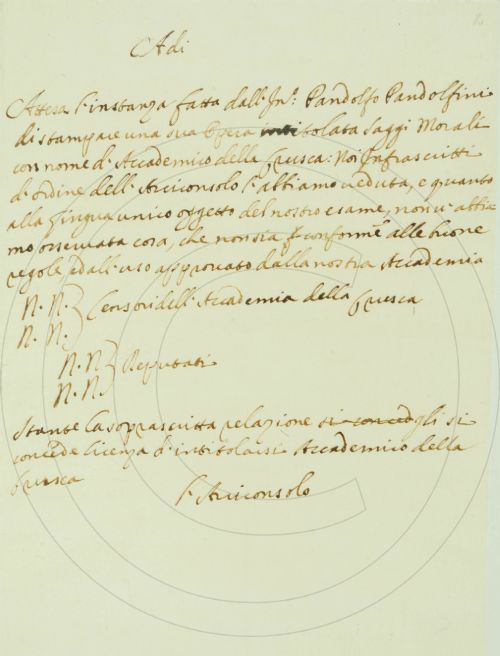 Adi
Attesa l'instanza fatta dall'In: Pandolfo Pandolfini
di stampare una sua Opera intitolata Saggi Morali
con nome d'Accademico della Crusca: Noi Infrascritti
di ordine dell'Arciconsolo l'abbiamo veduta, e quanto
alla lingua unico oggetto del nostro esame, non v'abbia
mo osservata cosa, che non sia conforme alle buone
regole ed all'uso approvato dalla nostra Accademia
N. N. } Censori dell'Accademia della Crusca
N. N.
N. N. } Deputati
N. N.
Stante la soprascritta relazione si concede gli si
concede licenza d'intitolarsi Accademico della
Crusca
L'Arciconsolo